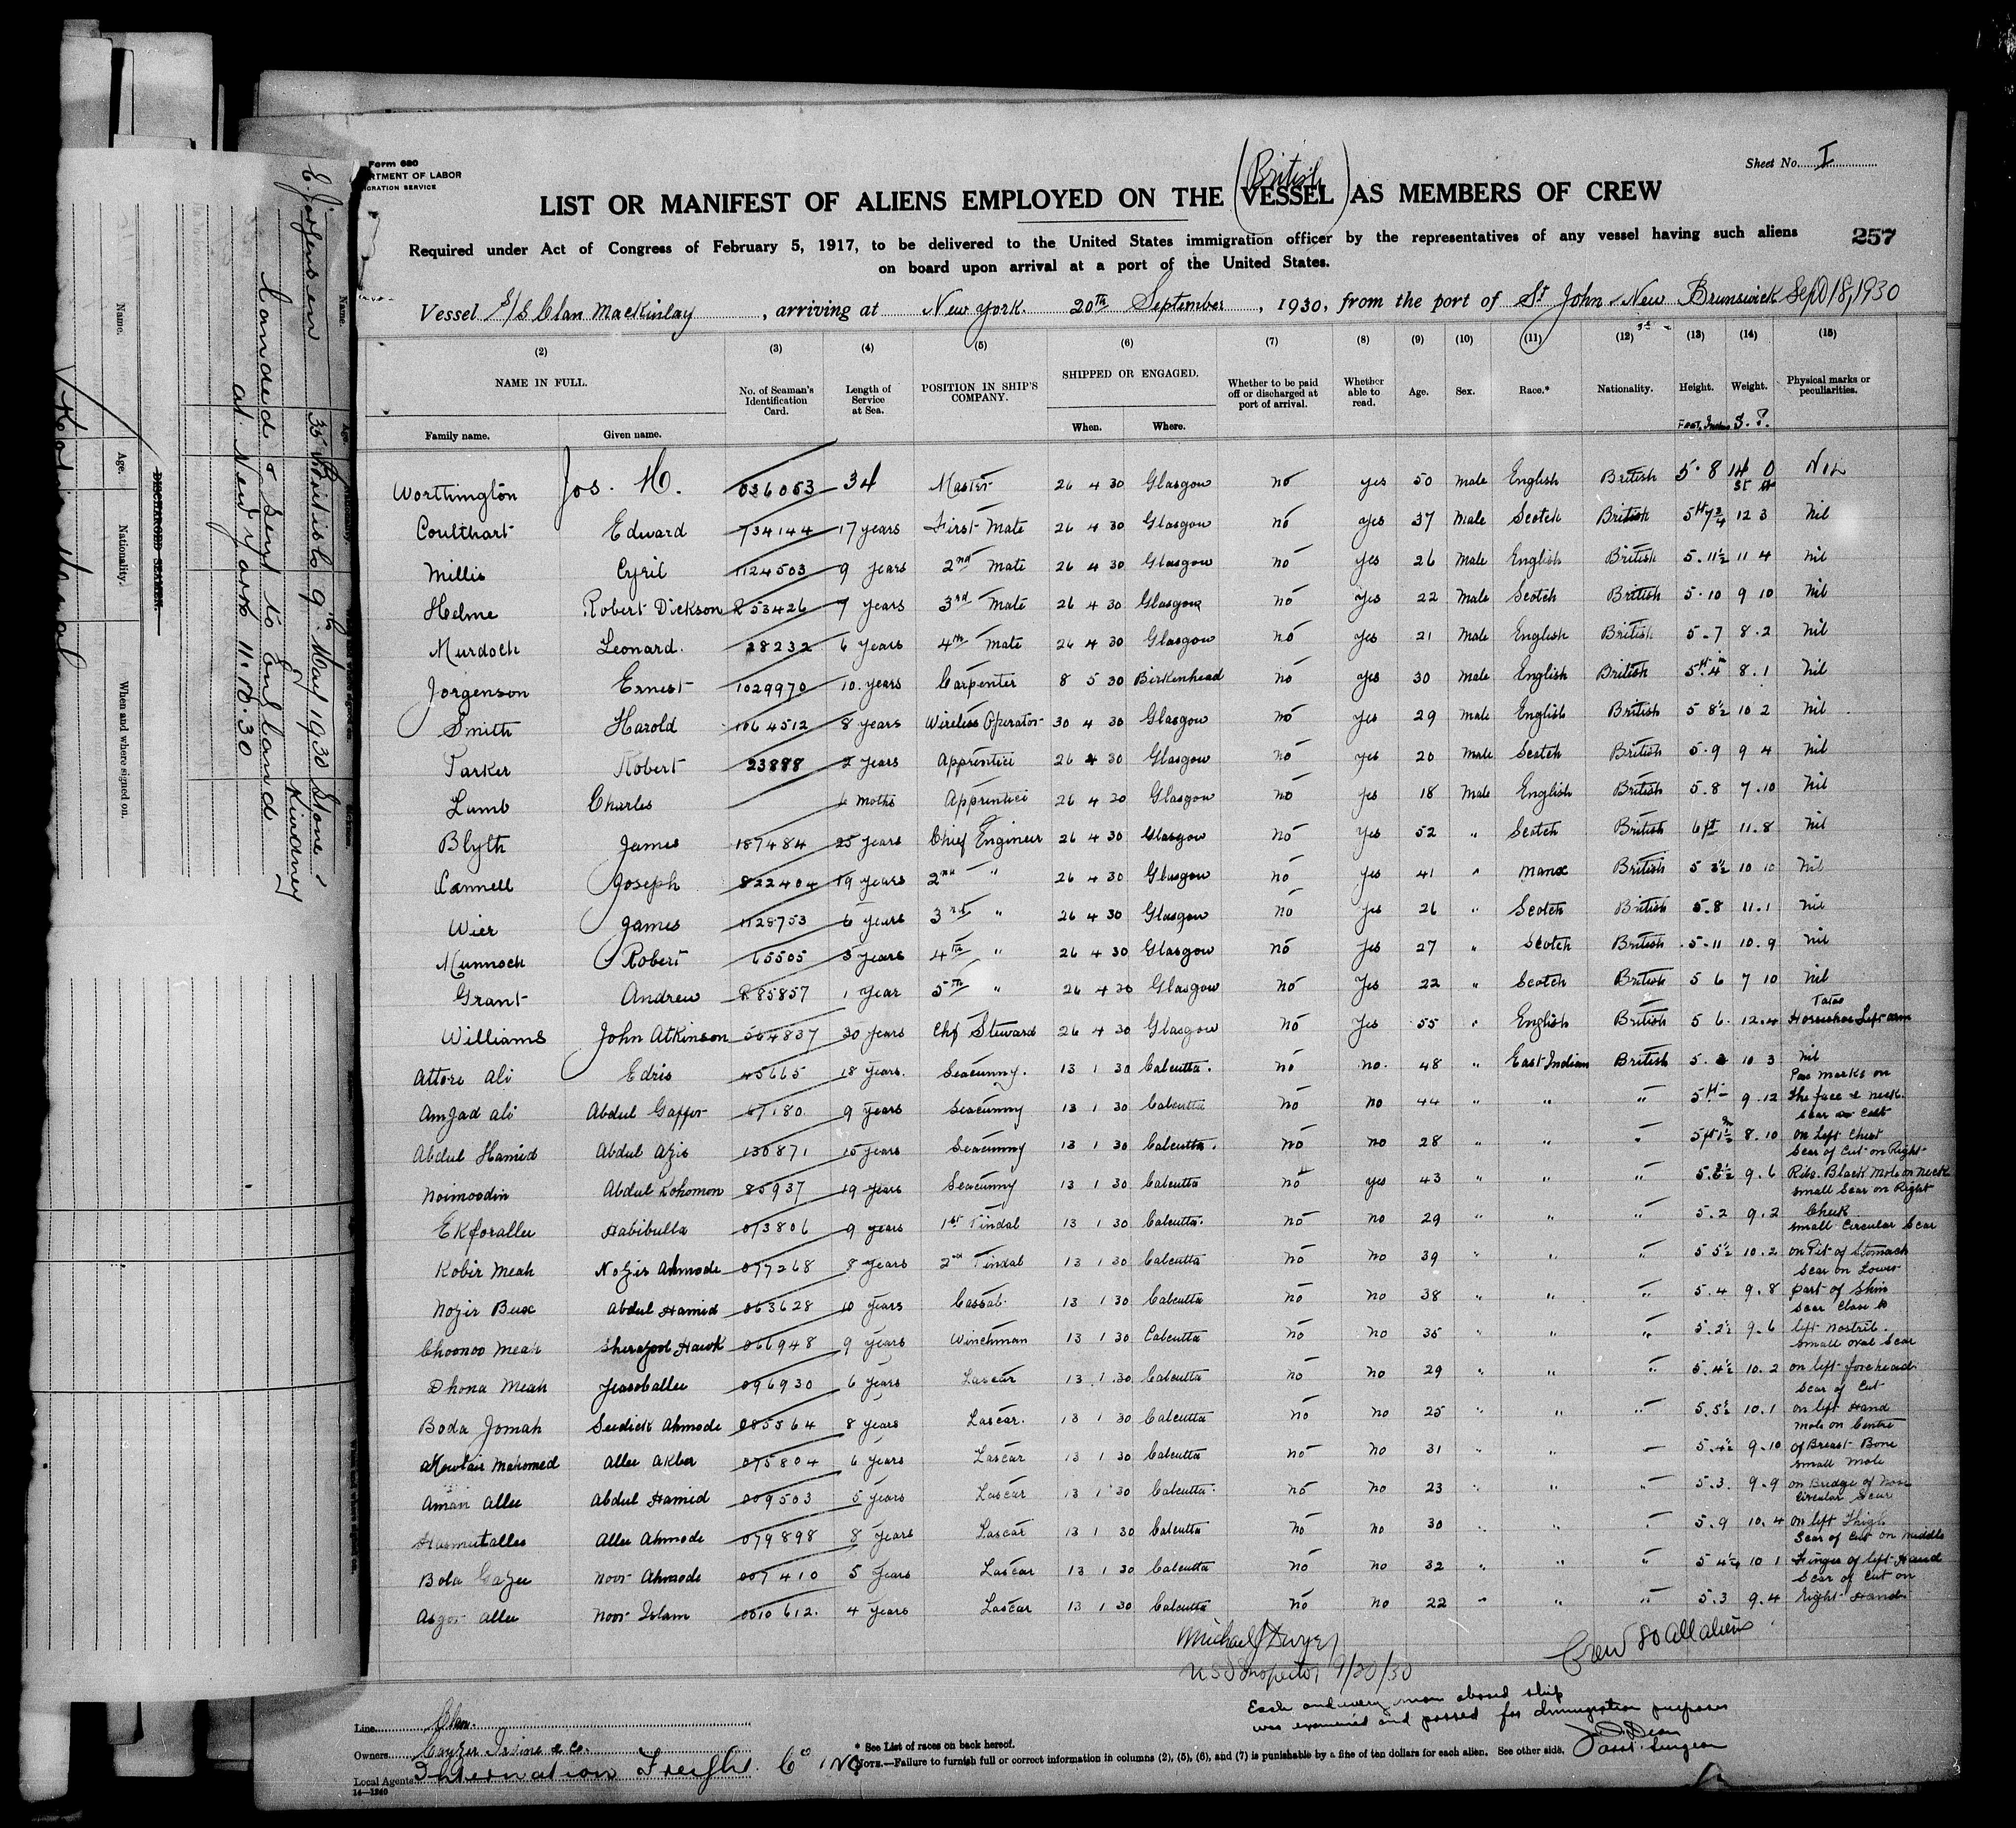 Form 680
RTMENT OF LABOR
IGRATION SERVICE
Sheet No. I
(British)
LIST OR MANIFEST OF ALIENS EMPLOYED ON THE VESSEL AS MEMBERS OF CREW
Required under Act of Congress of February 5, 1917, to be delivered to the United States immigration officer by the representatives of any vessel having such aliens
on board upon arrival at a port of the United States.
257
Vessel S/S Clan Mackinlay, arriving at New York. 20th September, 1930, from the port of St John New Brunswick Sept 18, 1930
(2) (3) (4) (5) (6) (7) (8) (9) (10) (11) (12) (13) (14) (15)
NAME IN FULL. No. of Seaman's Identification Card. Length of Service at Sea. POSITION IN SHIP'S COMPANY. SHIPPED OR ENGAGED. Whether to be paid off or discharged at port of arrival. Whether able to read. Age. Sex. Race.* Nationality. Height. Weight. Physical marks or peculiarities.
Family name. Given name. When. Where. Feet, Inches S. P.
Worthington Jos. H. 036053 34 Master 26 4 30 Glasgow no yes 50 male English British 5.8 14 0 Nil
Coulthart Edward 734144 17 years First Mate 26 4 30 Glasgow no yes 37 male Scotch British 5 ft 7 3/4 12 3 nil
Millis Cyril 1124503 9 years 2nd Mate 26 4 30 Glasgow no yes 26 male English British 5.11½ 11 4 nil
Helme Robert Dickson R53426 7 years 3rd Mate 26 4 30 Glasgow no yes 22 male Scotch British 5.10 9 10 nil
Murdoch Leonard. 28232 6 years 4th Mate 26 4 30 Glasgow no yes 21 male English British 5.7 8.2 nil
Jorgenson Ernest 1029970 10 years Carpenter 8 5 30 Birkenhead no yes 30 male English British 5 ft 4 in 8.1 nil
Smith Harold 1064512 8 years Wireless Operator 30 4 30 Glasgow no yes 29 male English British 5 8½ 10 2 nil
Parker Robert 23888 2 years Apprentice 26 4 30 Glasgow no yes 20 male Scotch British 5.9 9 4 nil
Lumb Charles 6 moths Apprentice 26 4 30 Glasgow no yes 18 male English British 5.8 7.10 nil
Blyth James 187484 25 years Chief Engineer 26 4 30 Glasgow no yes 52 " Scotch British 6 ft 11.8 nil
Cannell Joseph 822404 19 years 2nd " 26 4 30 Glasgow no yes 41 " manx British 5 3½ 10 10 nil
Wier James 1128753 6 years 3rd " 26 4 30 Glasgow no yes 26 " Scotch British 5.8 11.1 nil
Munnoch Robert 65505 5 years 4th " 26 4 30 Glasgow no yes 27 " Scotch British 5.11 10.9 nil
Grant Andrew R85857 1 year 5th " 26 4 30 Glasgow no yes 22 " Scotch British 5 6 7 10 nil
Williams John Atkinson 564837 30 years Chf Steward 26 4 30 Glasgow no yes 55 " English British 5 6. 12.4 Tatoo Horseshoe Left arm
Attore Ali Edris 45665 18 years. Seacunny. 13 1 30 Calcutta. no no. 48 " East Indian British 5. 2 10 3 nil
Amjad ali Abdul Gaffer 67180 9 years Seacunny 13 1 30 Calcutta no no 44 " " " 5 ft - 9.12 Pox marks on the face & neck.
Abdul Hamid Abdul Azis 130871 15 years Seacunny 13 1 30 Calcutta. no no 28 " " " 5 ft 1½ 8.10 Scar on Left Chest
Noimoodin Abdul Rohomon 85937 19 years Seacunny 13 1 30 Calcutta no yes 43 " " " 9.6 Scar of Cut on Right Ribs. Black Mole on neck
Ekforallee Habibulla 073806 9 years 1st Tindal 13 1 30 Calcutta. no no 29 " " " 5.2 9.2 small Scar on Right Cheek
Kobir Meah Nozir Ahmode 077268 8 years 2nd Tindal 13 1 30 Calcutta no no 39 " " " 5 5½ 10.2 small Circular Scar on Pit of Stomach
Nozir Bux Abdul Hamid 063628 10 years Cassab 13 1 30 Calcutta no no 38 " " " 5.4 9.8 Scar on Lower part of Shin
Choonoo Meah Sherazool Hawk 066948 9 years Winchman 13 1 30 Calcutta no no 35 " " " 5.2½ 9.6 Scar Close to left nostril.
Dhona Meah 096930 6 years Lascar 13 1 30 Calcutta no no 29 " " " 5.4½ 10.2 small oval Scar on left forehead
Boda Jomah Seedick Ahmode 085564 8 years Lascar. 13 1 30 Calcutta no no 25 " " " 5.5½ 10.1 Scar of Cut on left Hand
Mahomed Allee Akber 075804 6 years Lascar 13 1 30 Calcutta no no 31 " " " 5.4½ 9.10 Mole on Centre of Breast Bone
Aman Allee Abdul Hamid 009503 5 years Lascar 13 1 30 Calcutta no no 23 " " " 5.3. 9.9 small mole on Bridge of Nose
Hasmutallee Allee Ahmode 079898 8 years Lascar 13 1 30 Calcutta no no 30 " " " 5.9 10.4 Circular Scar on left Thigh
Bola Gazee Noor Ahmode 007410 5 years Lascar 13 1 30 Calcutta no no 32 " " " 5 4½ 10 1 Scar of Cut on middle Finger of left Hand
Asgor Allee Noor Islam 0010612. 4 years Lascar 13 1 30 Calcutta no no 22 " " " 5.3 9.4 Scar of Cut on Right Hand
Michael J Dwyer
U S Inspector 9/20/30
Crew 80 all aliens
Each and every man aboard ship
was examined and passed for immigration purposes
Dean
Asst. Surgeon
Line Clan.
Owners Cayzer Irvine & Co.
Local Agents Internation Freight Co INC
14—1240
* See List of races on back hereof.
NOTE.—Failure to furnish full or correct information in columns (2), (5), (6), and (7) is punishable by a fine of ten dollars for each alien. See other side.
Name. Age. Nationality. When and where signed on.
DISCHARGED SEAMEN.
Name. Age.
E. Jorgensen 35 British 9th May 1930 Stone, Kindney
Landed & sent to England
at New York 11.10.30